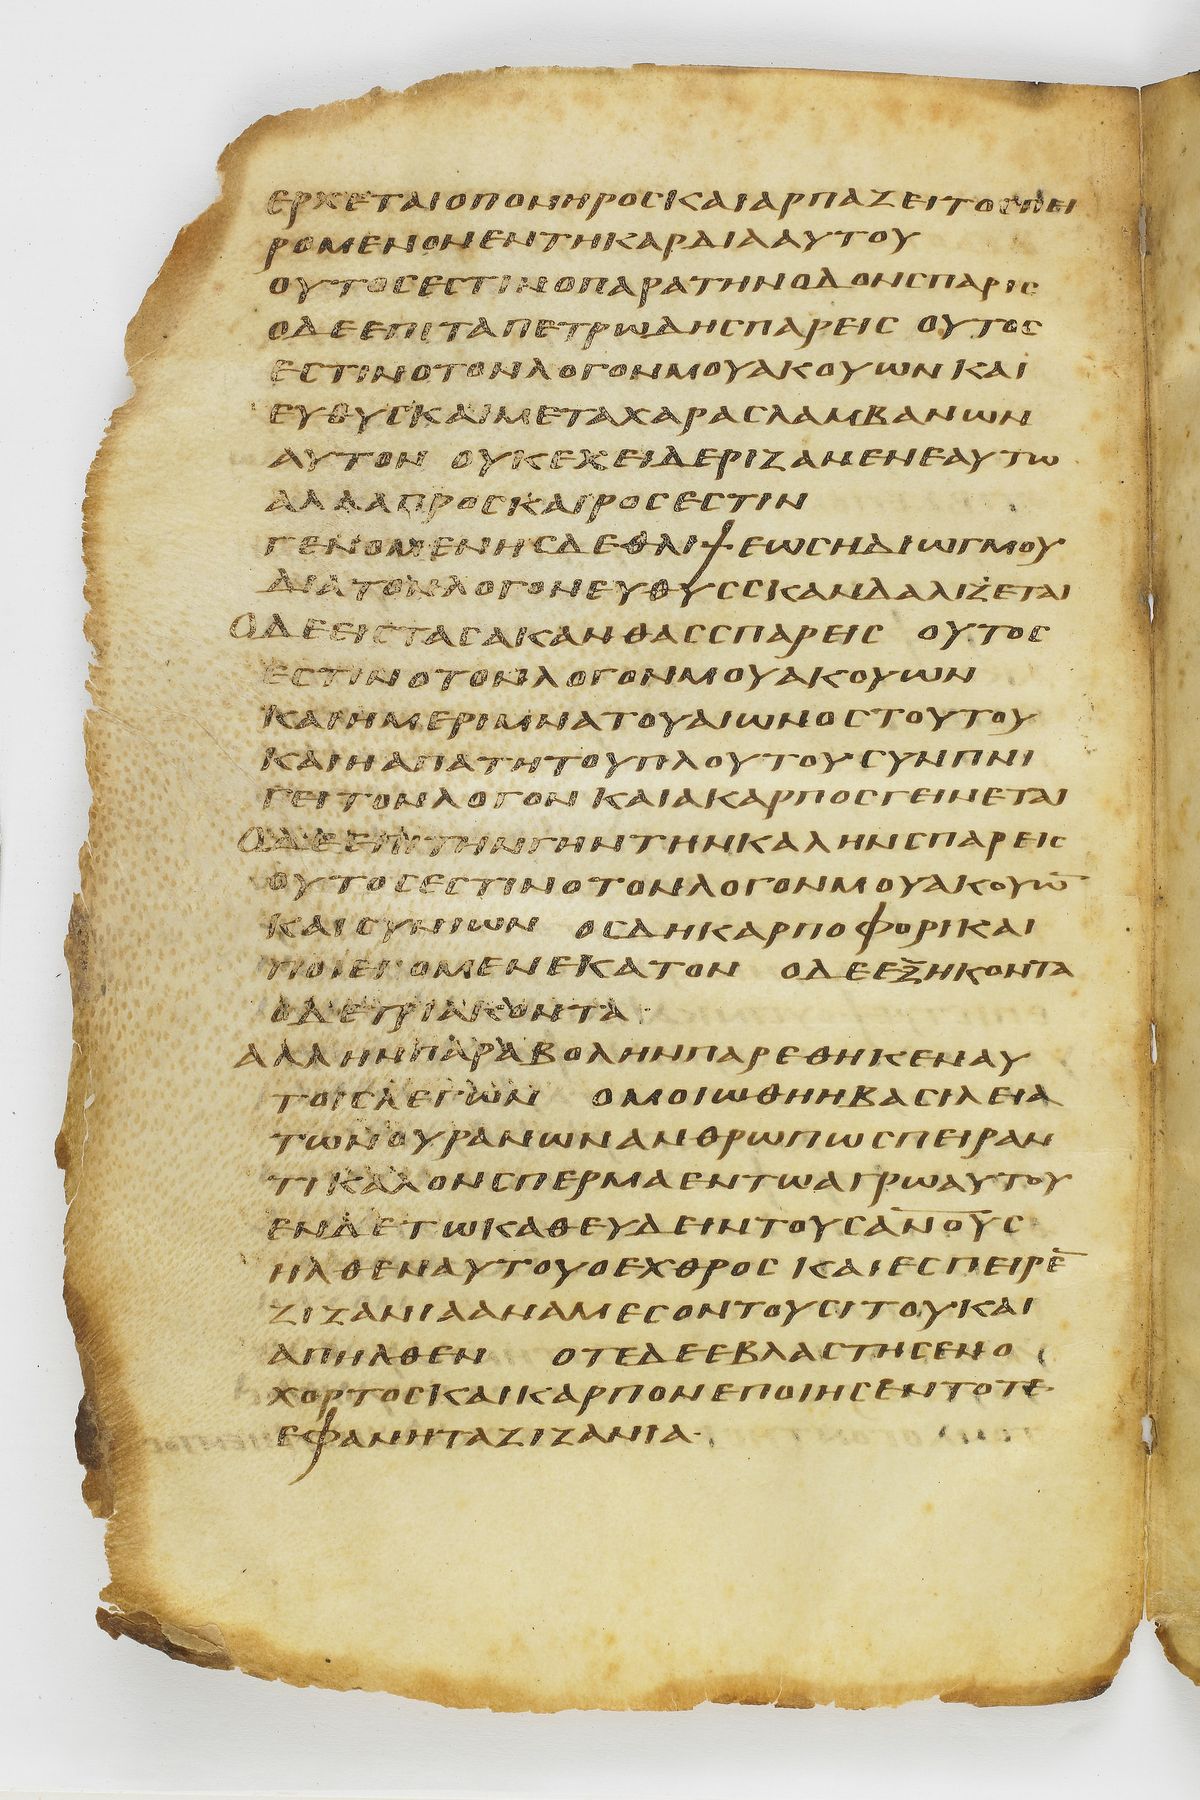 ερχεταιοπονηροσκαιαρπαζειτοσπει
ρομενονεντηκαρδιααυτου
ουτοσεστινοπαρατηνοδονσπαρισ
οδεεπιταπετρωδησπαρεισ ουτοσ
εστινοτονλογονμουακουωνκαι
ευθυσκαιμεταχαρασλαμβανων
αυτον ουκεχειδεριζανενεαυτω
αλλαπροσκαιροσεστιν
γενομενησδεθλιψεωσηδιωγμου
διατονλογονευθυσσκανδαλιζεται
οδεειστασακανθασσπαρεισ ουτοσ
εστινοτονλογονμουακουων
καιημεριμνατουαιωνοστουτου
καιηαπατητουπλουτουσυνπνι
γειτονλογον καιακαρποσγεινεται
οδεεπιτηνγηντηνκαληνσπαρεισ
ουτοσεστινοτονλογονμουακουω̅
καισυνιων οσδηκαρποφορικαι
ποιει ομενεκατον οδεεξηκοντα
οδετριακοντα·
αλληνπαραβοληνπαρεθηκεναυ
τοισλεγων ομοιωθηηβασιλεια
τωνουρανωνανθρωπωσπειραν
τικαλονσπερμαεντωαγρωαυτου
ενδετωκαθευδειντουσα̅ν̅ο̅υ̅σ̅
ηλθεναυτουοεχθροσ καιεσπειρε̅
ζιζανιααναμεσοντουσιτουκαι
απηλθεν οτεδεεβλαστησενο
χορτοσκαικαρπονεποιησεντοτε
εφανηταζιζανια·